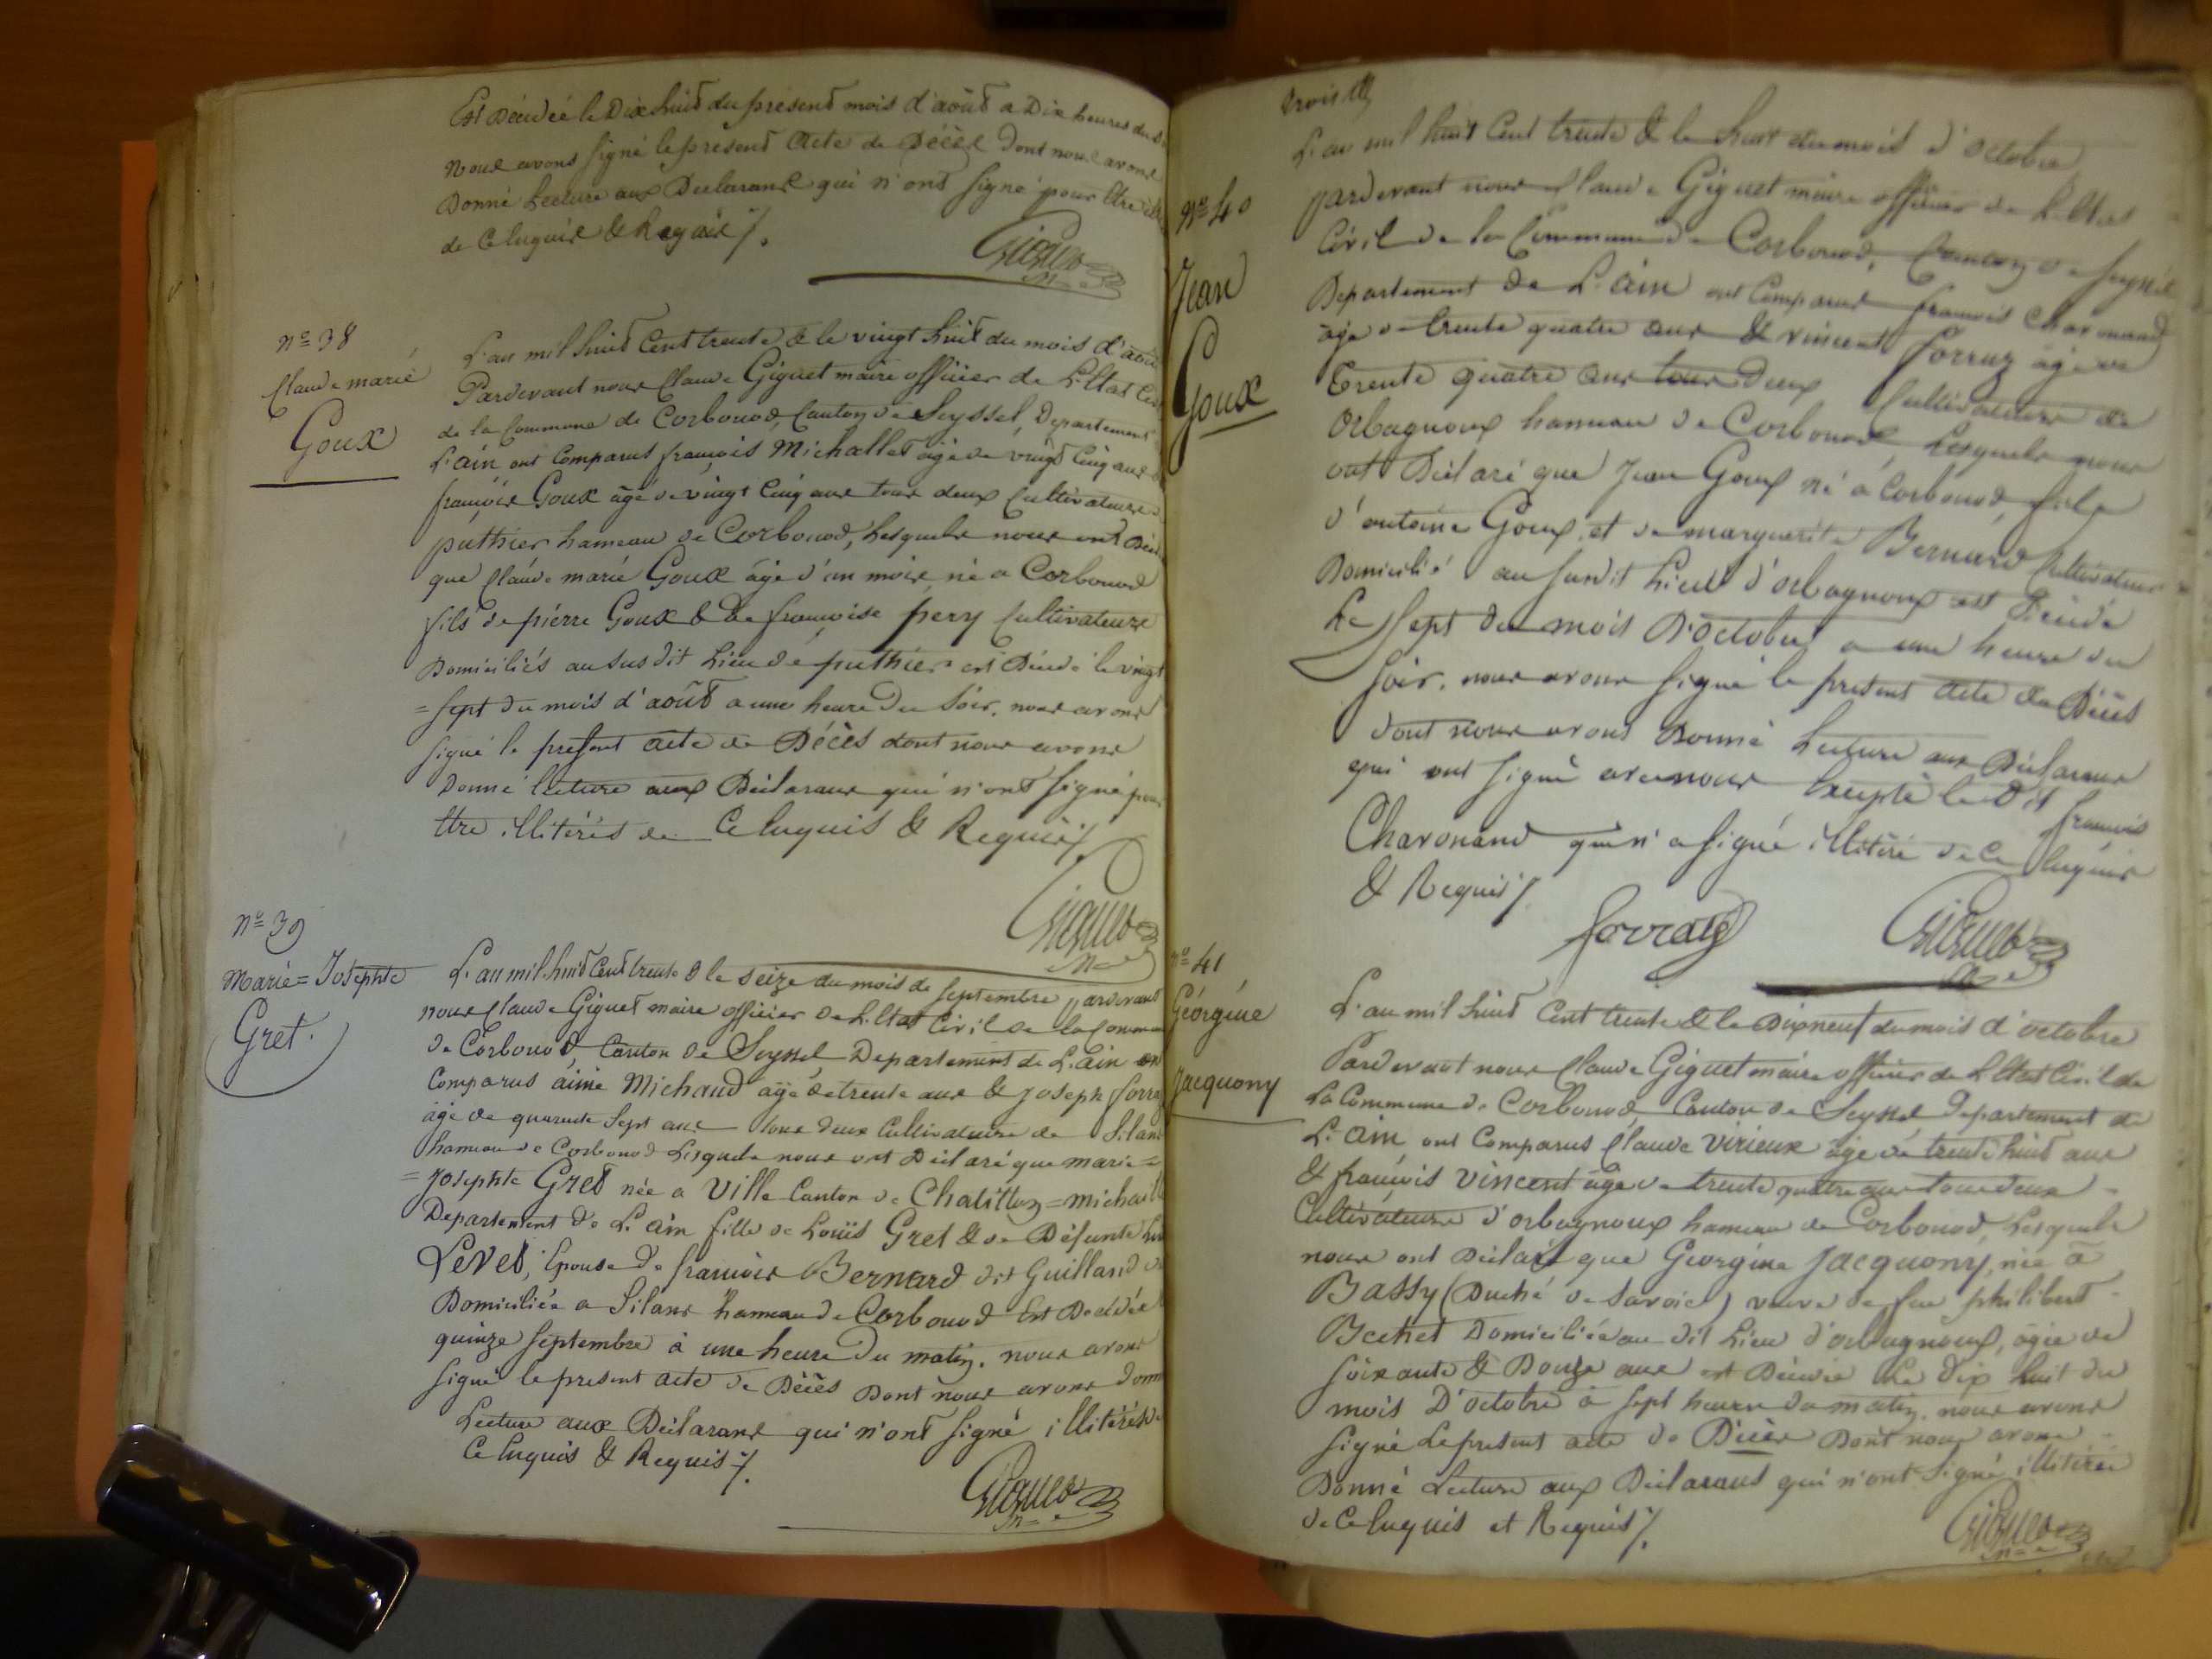 Est Décédée le Dix huit du présent mois d'août a Dix heures du
nous avons signé le présent acte de Décès dont nous avons
Donné Lecture aux Déclarans qui n'ont signé pour être
de ce Enquis & Requis ⁒.
Giguet
nº 38
Claude marie
Goux
L'an mil huit Cent trente & le vingt huit du mois d'août
Pardevant nous Claude Giguet maire officier de L'Etat
de la Commune de Corbonod, Canton de Seyssel, Departement
L'ain ont Comparus françois Michallet âgé de vingt Cinq ans
françois Goux âgé de vingt Cinq ans tous deux Cultivateurs
puthier hameau de Corbonod, Lesquels nous ont
que Claude marie Goux âgé d'un mois, né a Corbonod
fils de pierre Goux & de françoise pery Cultivateurs
Domiciliés au susdit Lieu de puthier est Décédé le vingt
= sept du mois d'août a une heure du soir, nous avons
signé le présent acte de Décès dont nous avons
Donné lecture aux Déclarans qui n'ont signé pour
être illitérés de ce Enquis & Requis ⁒.
Giguet
nº 39
Marie = Josephte
Gret.
L'an mil huit Cent trente & le seize du mois de septembre pardevant
nous Claude Giguet maire officier de L'Etat Civil de la Commune
de Corbonod, Canton de Seyssel Departement de L'ain
Comparus aimé Michaud âgé de trente ans & joseph
âgé de quarante sept ans tous deux Cultivateurs de Silans
hameau de Corbonod Lesquels nous ont Déclaré que marie =
= Josephte Gret née a Ville Canton de Chatillon = michaille
Departement de L'ain fille de Louis Gret & de Défunte
Levet, Epouse de françois Bernard dit Guilland
Domiciliée a Silans hameau de Corbonod Est Décédée
quinze septembre à une heure du matin. nous avons
signé le present acte de Décès Dont nous avons
Lecture aux Déclarans qui n'ont signé illitérés de
Ce Enquis & Requis ⁒.
Giguet
nº 40
Jean
Goux
L'an mil huit Cent trente & le huit du mois d'octobre
pardevant nous Claude Giguet maire officier de L'Etat
Civil de la Commune de Corbonod, Canton de Seyssel
Departement de L'ain ont Comparus françois Charonand
âgé de trente quatre ans & vincent forraz âgé de
trente quatre ans tous Deux Cultivateurs de
Orbagnoux hameau de Corbonod Lesquels nous
ont Déclaré que Jean Goux né à Corbonod, fils
d'antoine Goux et de marguerite Bernard Cultivateur
Domicilié au susdit Lieu d'orbagnoux est Décédé
Le sept du mois D'octobre a une heure du
soir. nous avons signé le présent acte de Décès
dont nous avons Donné Lecture aux Déclarans
qui ont signé avec nous Excepté le Dit françois
Charonand qui n'a signé illitéré de ce Enquis
& Requis ⁒.
forraz
Giguet
nº 41
Géorgine
Jacquony
L'an mil huit Cent trente & le Dixneuf du mois d'octobre
Pardevant nous Claude Giguet maire officier de L'Etat Civil de
La Commune de Corbonod Canton de Seyssel Departement de
L'ain ont Comparus Claude Virieux âgé de trente huit ans
& françois Vincent âgé de trente quatre ans tous deux
Cultivateurs d'orbagnoux hameau de Corbonod, Lesquels
nous ont Déclaré que Georgine Jacquony, née à
Bassy (Duché de Savoie) veuve de feu philibert
Domiciliée au dit Lieu d'orbagnoux, âgée de
soixante & Douze ans est Décédée Le Dix huit du
mois D'octobre à sept heures du matin. nous avons
signé Le présent acte de Décès Dont nous avons
Donné Lecture aux Déclarans qui n'ont signé illitérés
de ce Enquis et Requis ⁒.
Giguet